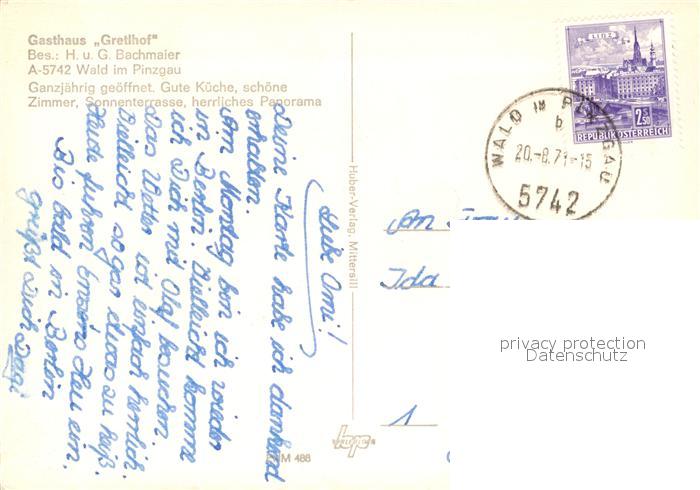 Gasthaus „Gretlhof"
Bes.: H. u. G. Bachmaier
A-5742 Wald im Pinzgau
Ganzjährig geöffnet. Gute Küche, schöne
Zimmer, Sonnenterrasse, herrliches Panorama
Liebe Omi!
Deine Karte habe ich dankend
erhalten.
Am Montag bin ich wieder
in Berlin. Vielleicht komme
ich Dich mit Olaf besuchen.
Das Wetter ist einfach herrlich.
Vielleicht sogar etwas zu heiß.
Heute fuhren Ensens Heu ein.
Bis bald in Berlin
grüßt Dich Dagi
Huber-Verlag, Mittersill
M 488
LINZ
2.50
REPUBLIK ÖSTERREICH
WALD IM PINZGAU
b
20.-8.71-15
5742
An
Ida
1
privacy protection
Datenschutz